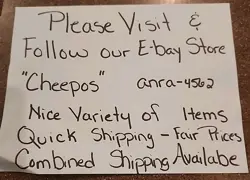 Please Visit &
Follow our E-bay Store
"Cheepos" anra-4562
Nice Variety of Items
Quick Shipping - Fair Prices
Combined Shipping Availabe